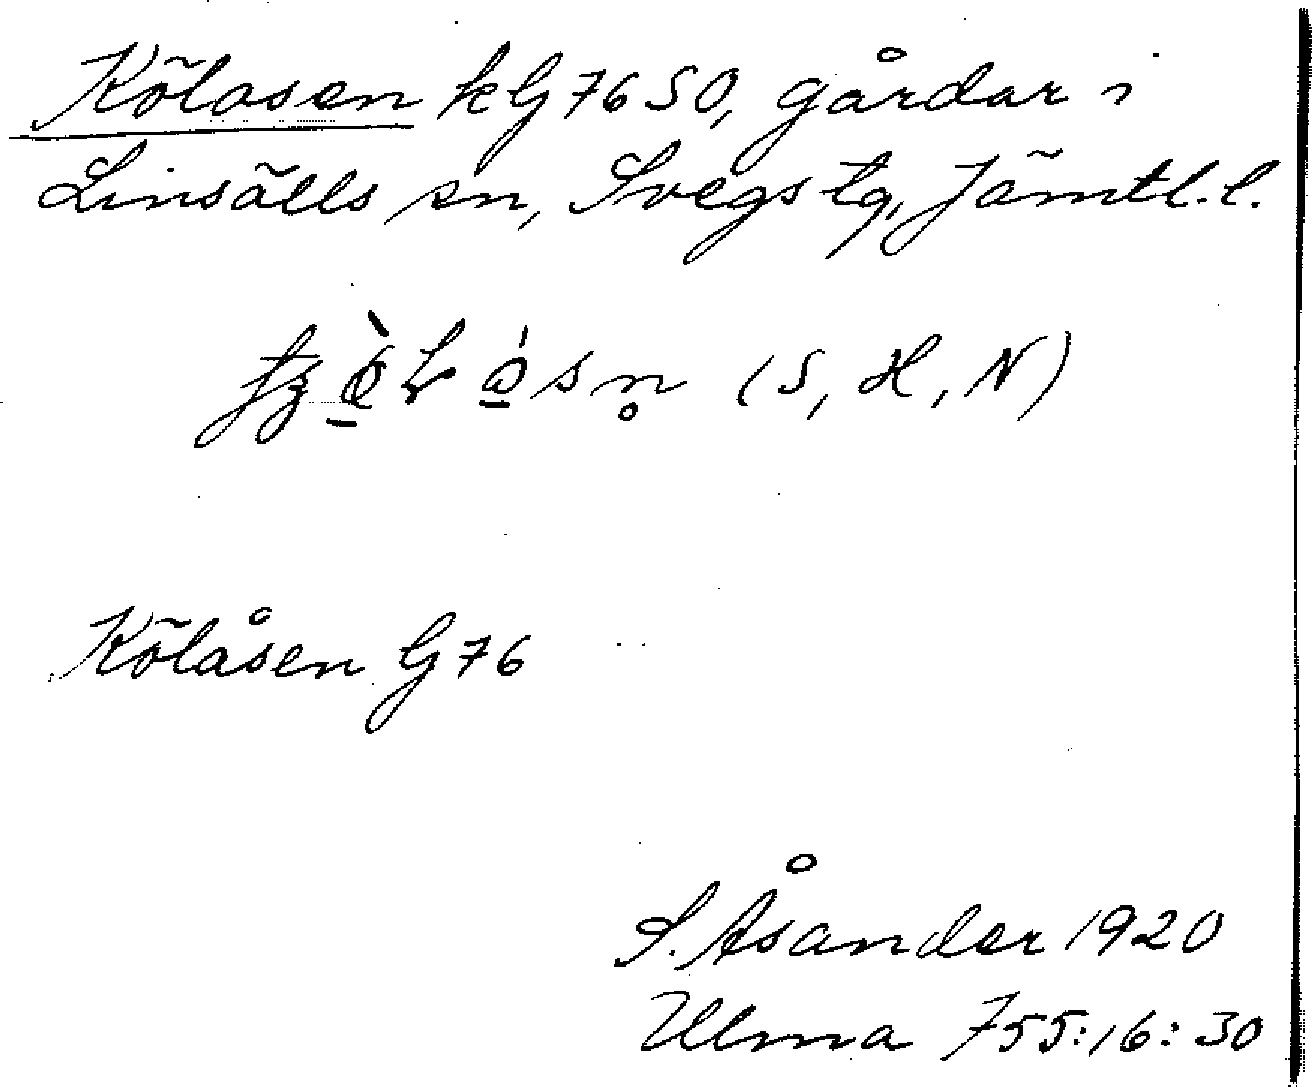 Kölosen kG76SO, gårdar i
Linsälls sn, Svegs tg, Jämtl. l.
(S, H, N)
Kölåsen G76
S. Åsander 1920
Ulma 755:16:30